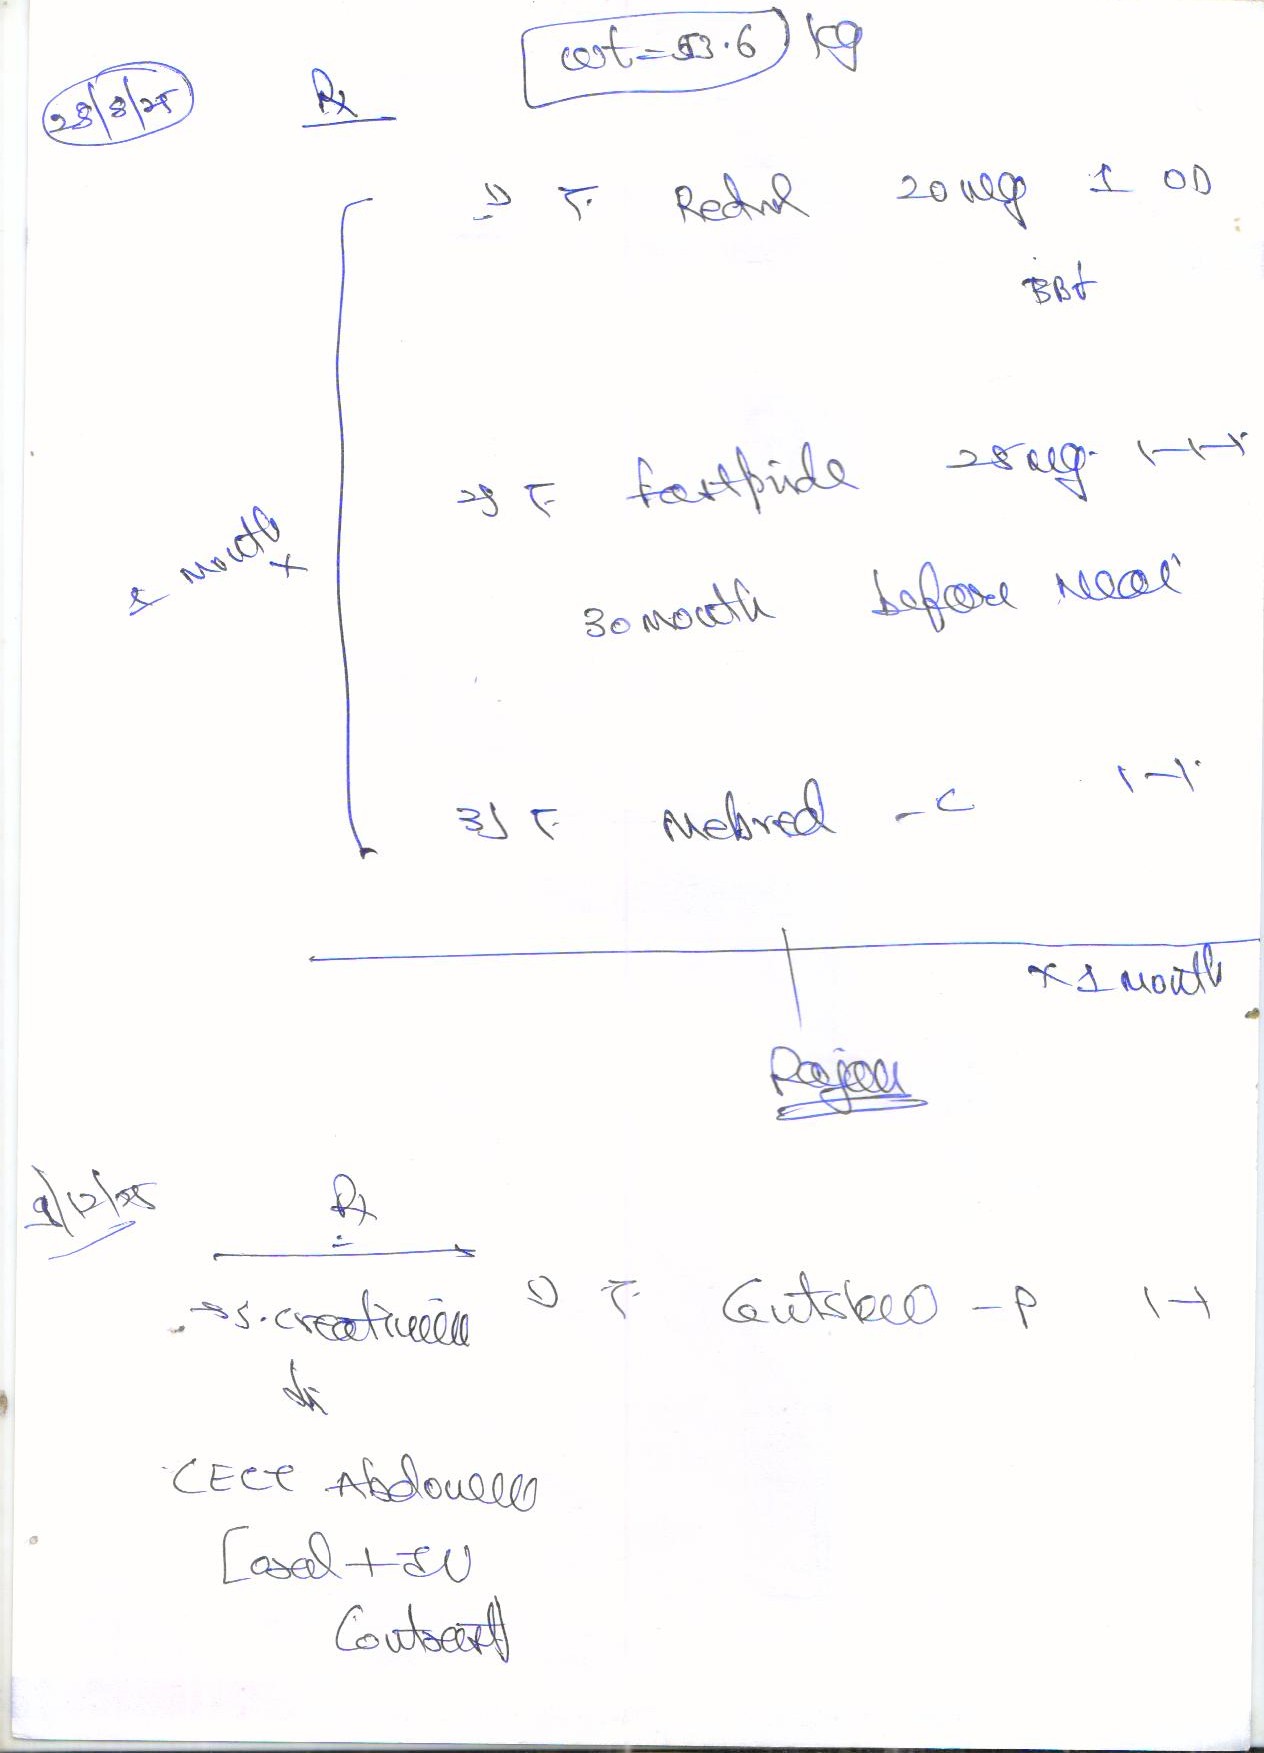 wt = 53.6 kg
28/8/25 Rx
1) T. Redul 20 mg 1 OD
BBF
2) T. 25 mg 1-1-1
30 month before meal
x month
3) T. Mebred - C 1-1
x 1 month
Rajan
9/12/25 Rx
→ S. creatinine 1) T. - P 1-1
CECT Abdomen
[oral + IV
Contrast]